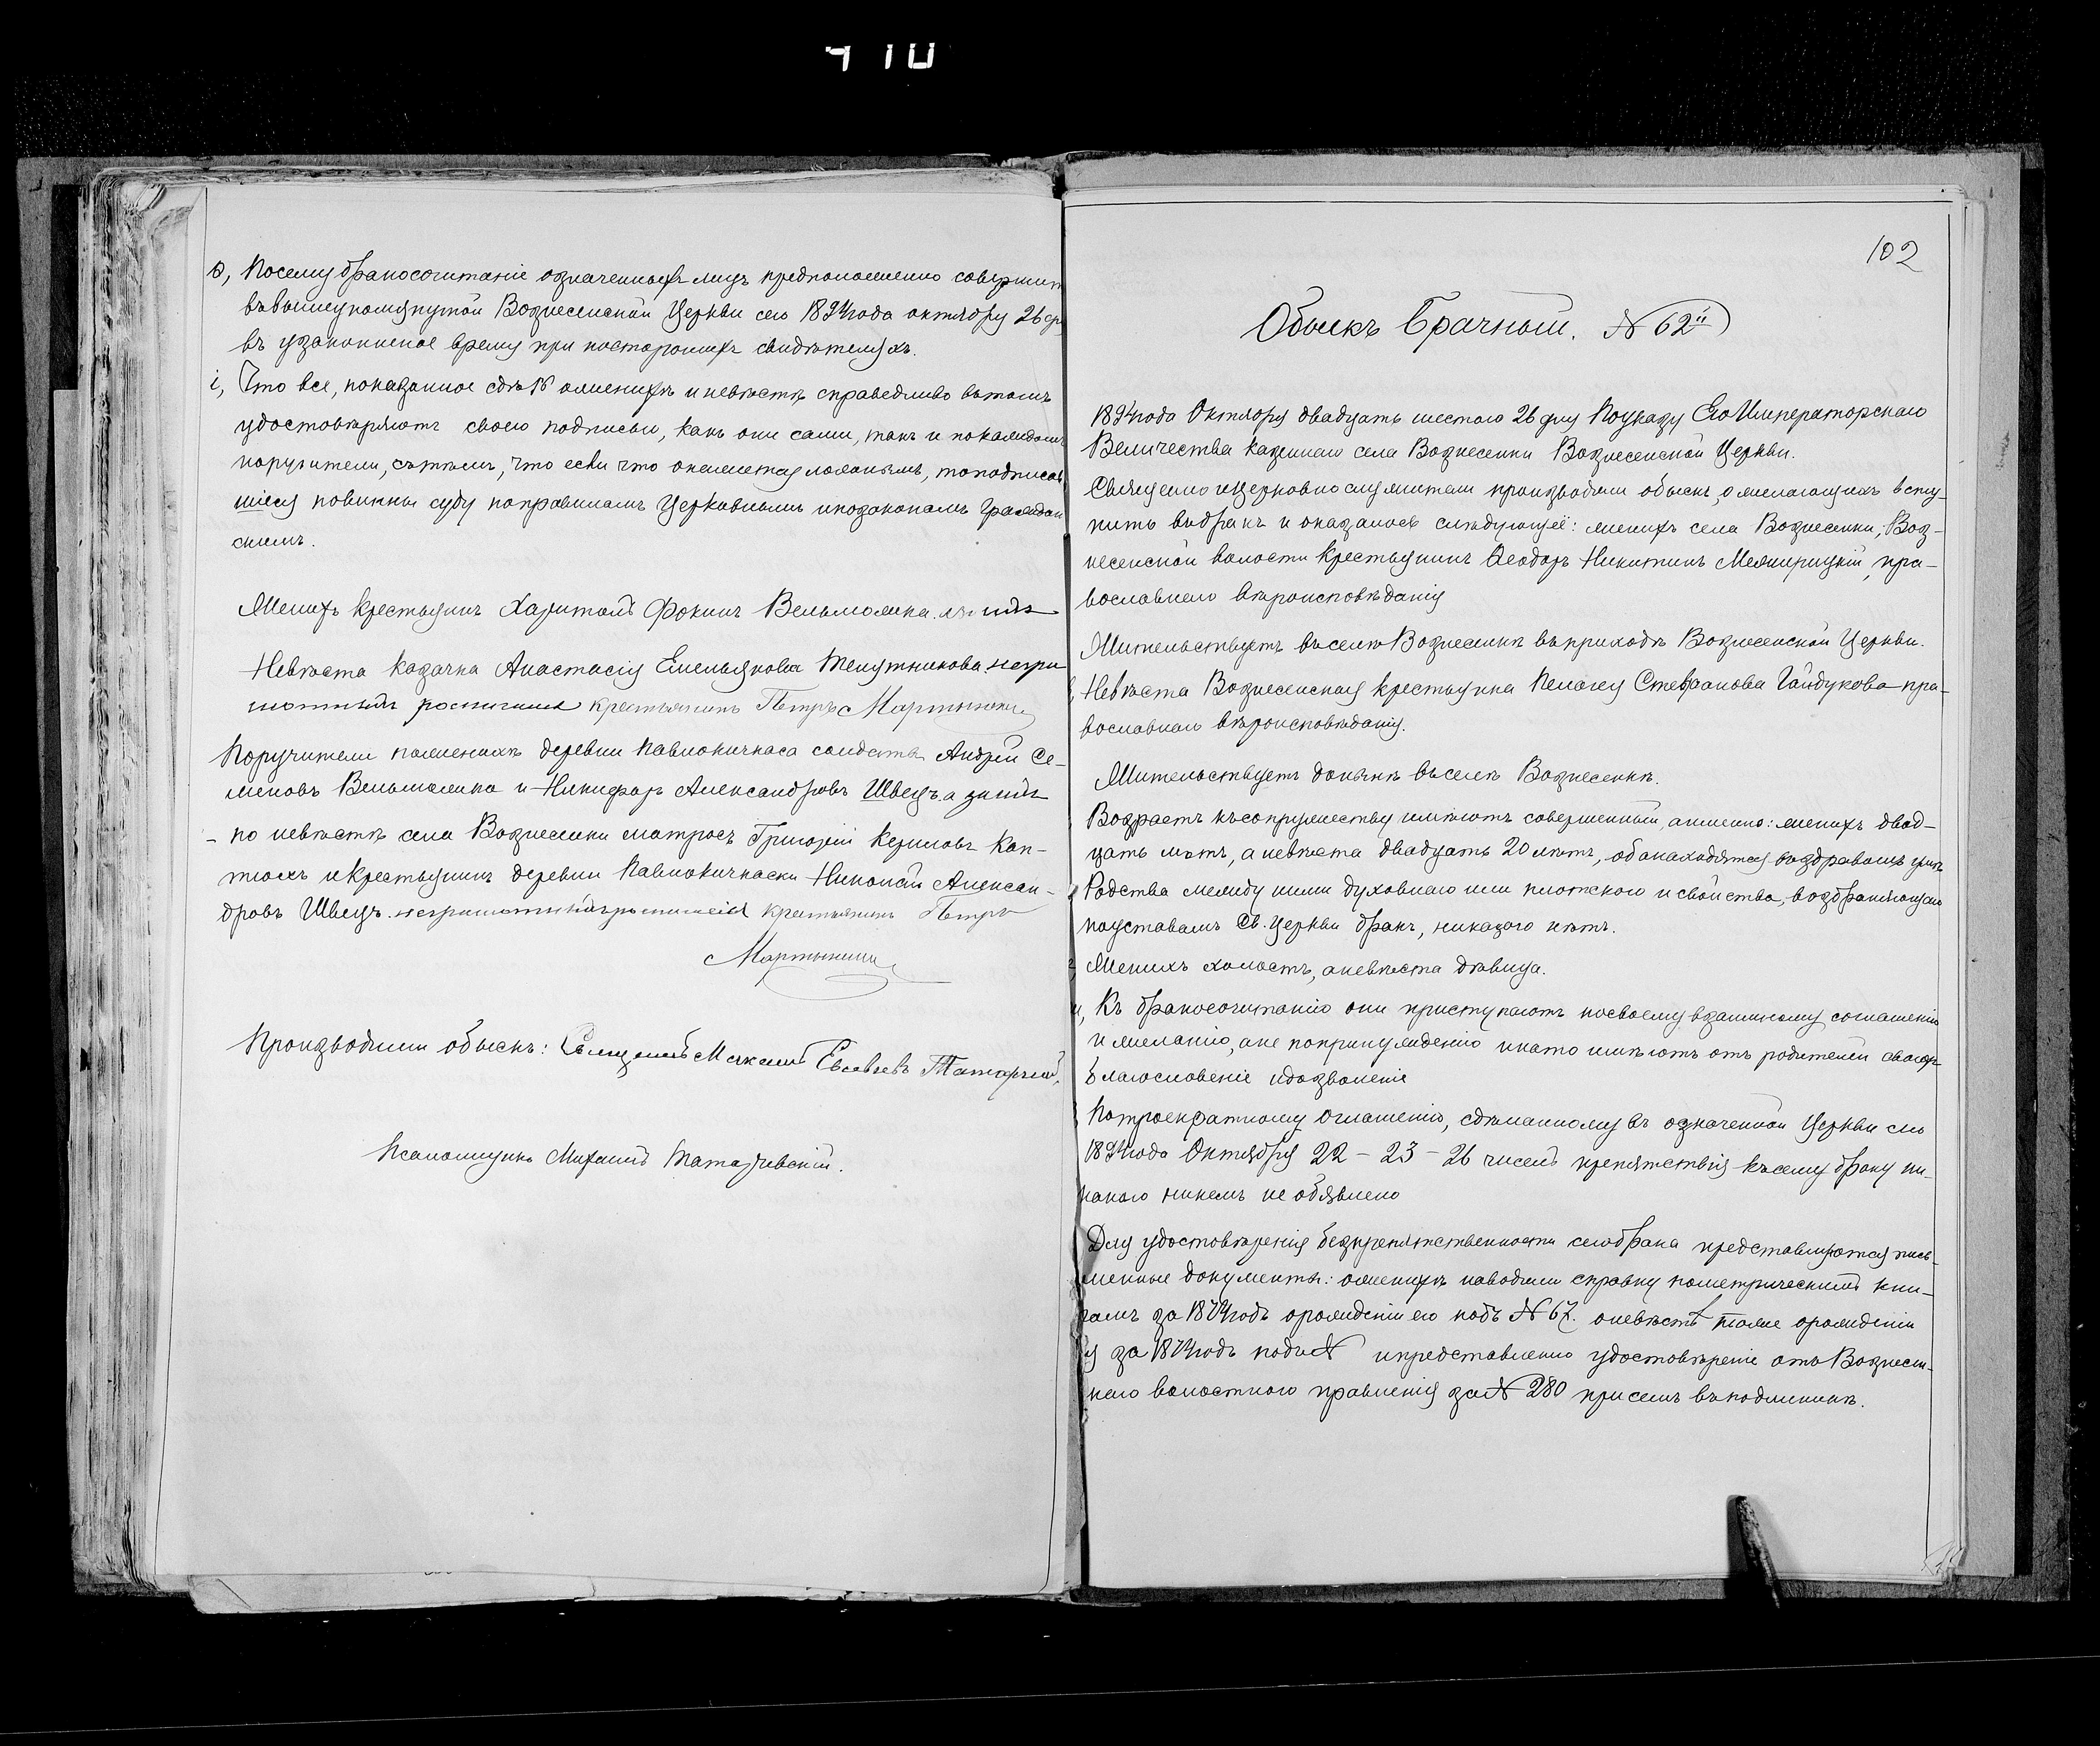 410
ѳ, Посему бракосочитаніе означенныхъ лицъ предположенно совершит
въвышеупомянутой Вознесенской Церкви сего 1894 года октября 26 дня
въ узаконенное время при постороннихъ свидѣтеляхъ.
і, Что все, показанное сдѣсь ожених и невѣстѣ справедливо вътомъ
удостовѣряютъ своею подписью, какъ они сами, такъ и покаждомъ
поручители, сътѣмъ, что если что окажется ложнымъ, топодписав
шіеся повинны суду поправиламъ Церковнымъ ипозаконамъ Граждан
скимъ.
Женихъ крестьянинъ Харитонъ Фокинъ Вельможка.
Невѣста казачка Анастасія Емельянова Телятникова. негра
мотный росписался крестьянинъ Петръ Мартыненко
Поручители поженихѣ деревни Павлокичкаса солдатъ Андрей Се-
меновъ Вельможка и Никифоръ Александровъ Швецъ.
- по невѣстѣ села Вознесенки матросъ Григорій Кириловъ Кап-
тюхъ икрестьянинъ деревни Павлокичкаски Николай Алексан-
дровъ Швецъ. неграмотный росписался крестьянинъ Петръ
Мартыненко
Производили обыскъ: Священникъ Максимъ Евсевіевъ Татарчевскій,
Псаломщикъ Михаилъ Татарчевскій.
102
Обыскъ Брачный. N 62й
1894 года Октября двадцать шестаго 26 дня Поуказу Его Императорскаго
Величества казеннаго села Вознесенки Вознесенской Церкви.
Священно ицерковно служители производили обыскъ, о желающихъ всту-
пить вобракъ и оказалось слѣдующее: женихъ села Вознесенки, Воз-
несенской волости Крестьянинъ Ѳеодоръ Никитинъ Межирицкій, пра-
вославнаго вѣроисповѣданія
Жительствуетъ въселѣ Вознесенкѣ въприходѣ Вознесенской Церкви.
Невѣста Вознесенская крестьянка Пелагея Стефанова Гайдукова пра-
вославнаго вѣроисповѣданія.
Жительствуетъ донынѣ въселѣ Вознесенкѣ.
Возрастъ къ супружеству имѣютъ совершенный, аименно: женихъ двад-
цать лѣтъ, а невѣста двадцать 20 лѣтъ, оба находятся воздравомъ умѣ
Родства между ними духовнаго или плотскаго и свойства, возбраняющаго
поуставамъ Св. Церкви бракъ, никакого нѣтъ.
Женихъ холостъ, аневѣста дѣвица.
Къ бракосочитанію они приступаютъ посвоему взаимному соглашенію
и желанію, ане попринужденію инато имѣютъ отъ родителей своихъ
благословеніе идозволеніе
Потроекратному оглашенію, сдѣланному въ означенной Церкви сего
1894 года Октября 22 - 23 - 26 чиселъ препятствія късему браку ни-
какого никемъ не объявлено
Для удостовѣренія безпрепятственности сегобрака представляются пись-
менные документы: оженихѣ наводили справку пометрическимъ кни-
гамъ за 1874 годъ орожденіи его подъ N 67. оневѣстѣ тоже орожденіи
ея за 1874 годъ подъ N ипредставлено удостовѣреніе отъ Вознесен-
скаго волостного правленія за N 280 присемъ въподлинникѣ.